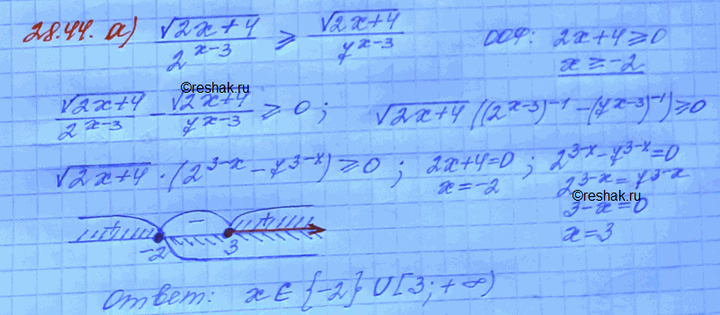 28.44. а) √(2x+4) / 2^(x-3) ≥ √(2x+4) / 4^(x-3) ООФ: 2x+4 ≥ 0
x ≥ -2
©reshak.ru
√(2x+4) / 2^(x-3) - √(2x+4) / 4^(x-3) ≥ 0 ; √(2x+4) ((2^(x-3))^(-1) - (4^(x-3))^(-1)) ≥ 0
√(2x+4) · (2^(3-x) - 4^(3-x)) ≥ 0 ; 2x+4=0 ; 2^(3-x) - 4^(3-x) = 0
x=-2 2^(3-x) = 4^(3-x)
©reshak.ru
3-x=0
x=3
+ - +
-2 3
Ответ: x∈{-2}∪[3;+∞)